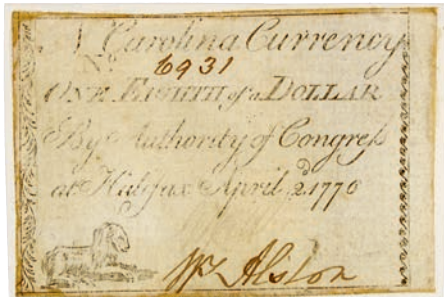 N. Carolina Currency
No. 6931
ONE EIGHTH of a DOLLAR
By Authority of Congress
at Halifax April 2d. 1776
Wm Alston